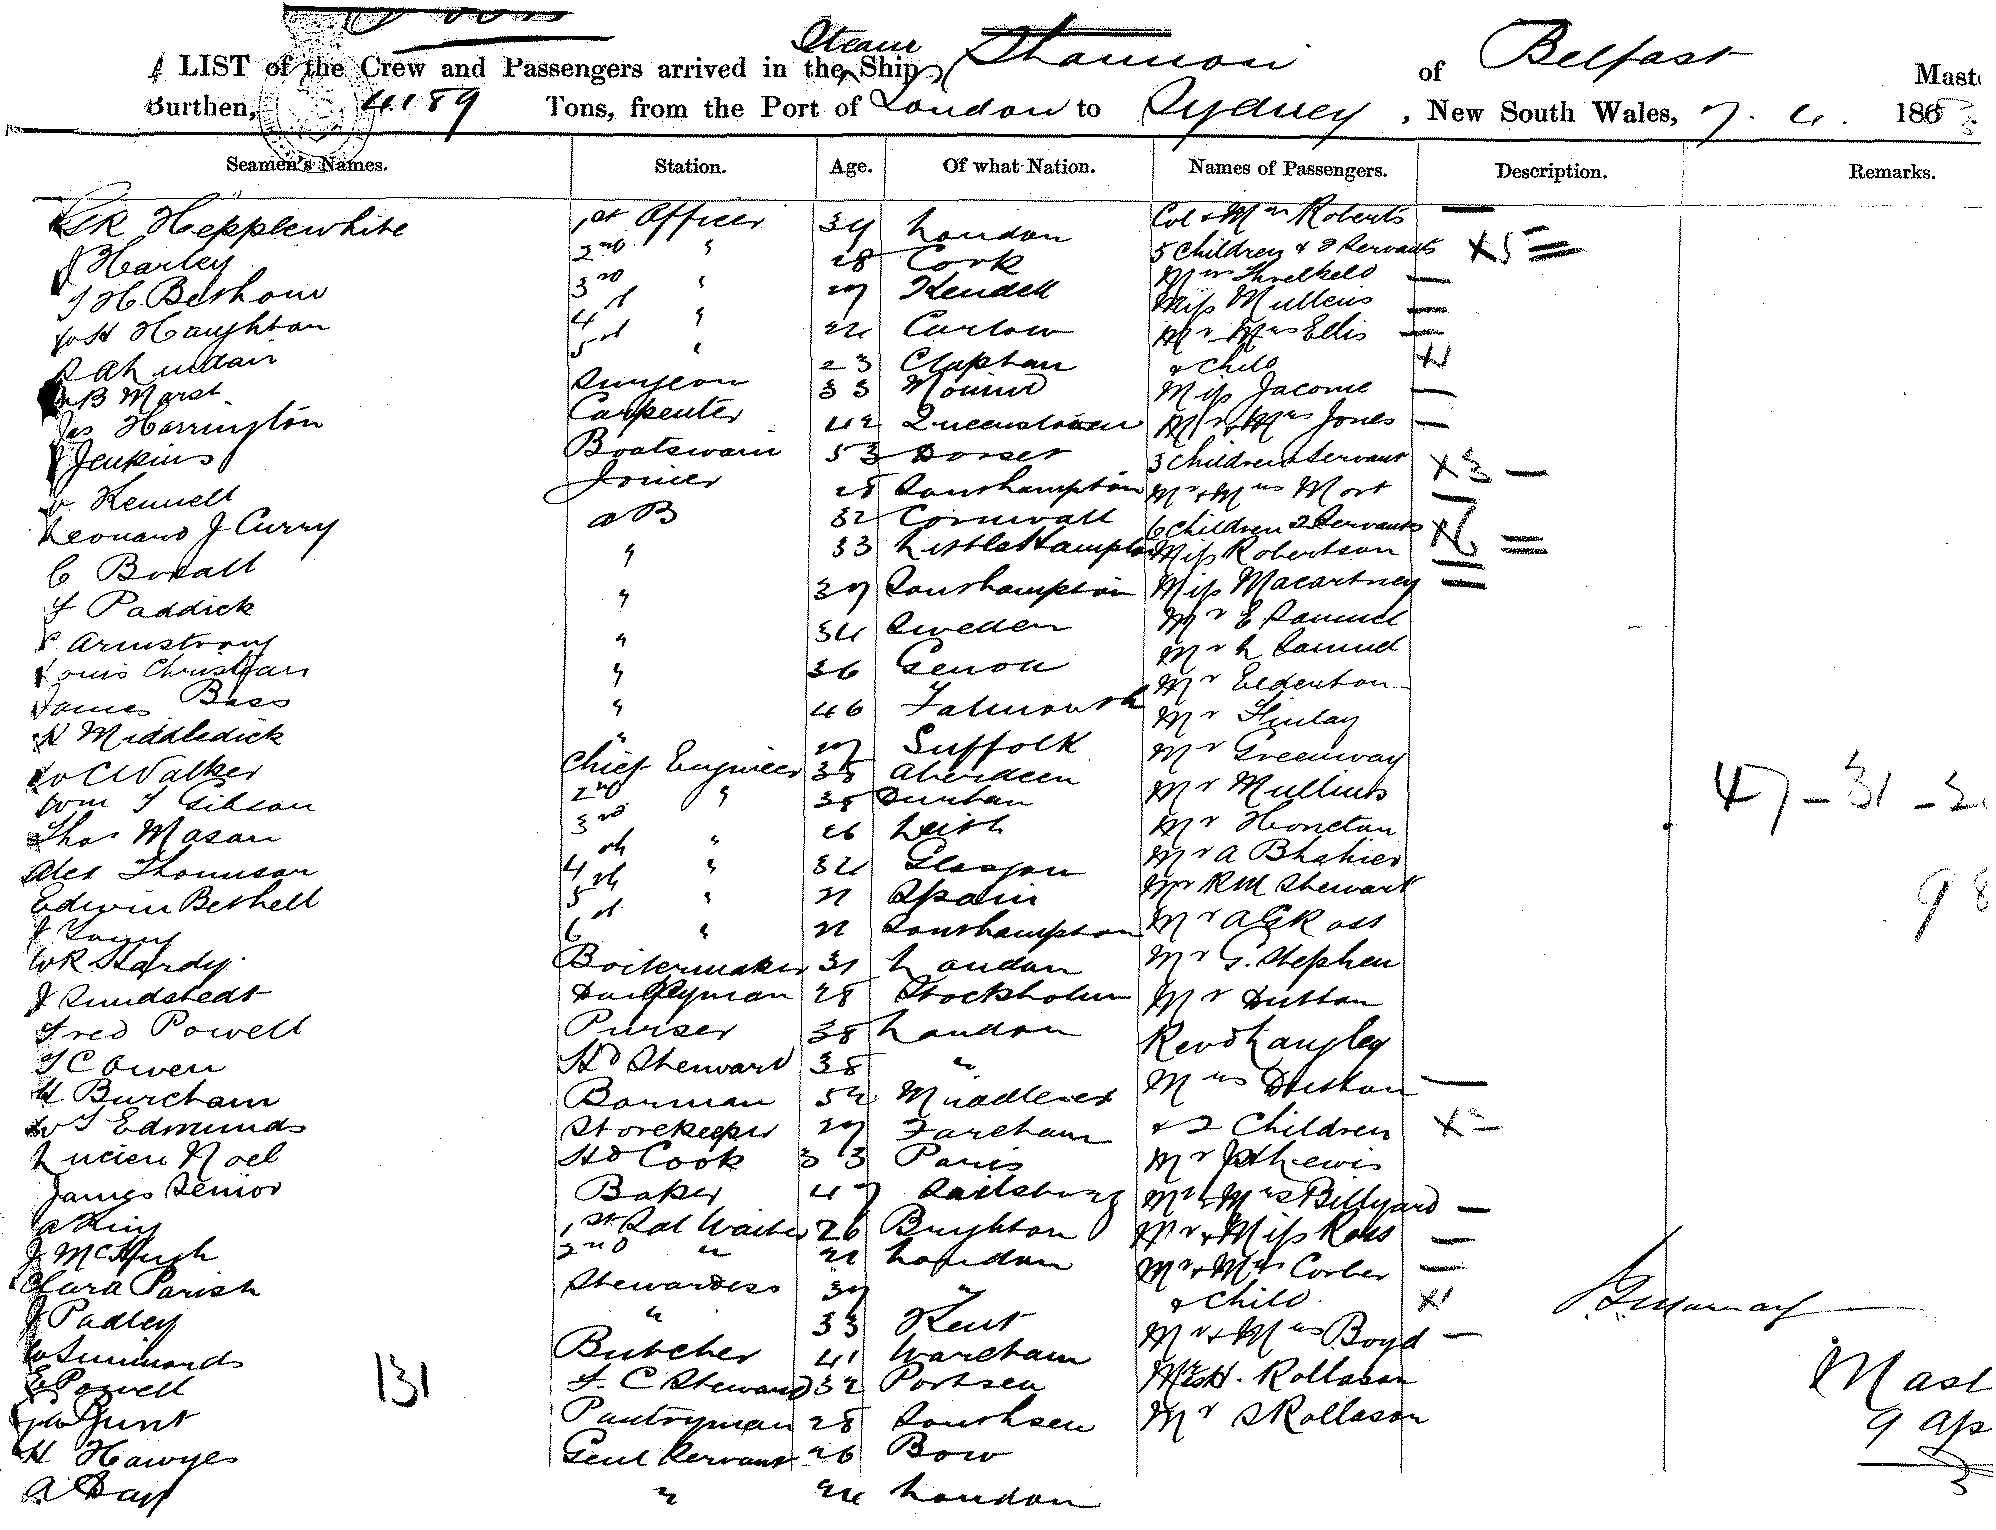 Steam
A LIST of the Crew and Passengers arrived in the Ship Shannon of Belfast Maste
Burthen, 4189 Tons, from the Port of London to Sydney, New South Wales, 7. 4. 188
Seamen's Names. Station. Age. Of what Nation. Names of Passengers. Description. Remarks.
GR Hepplewhite 1st Officer 34 London Col & Mrs Roberts —
J Harley 2nd " 28 Cork 5 Children & 2 Servants X5 =
3rd " 27 Kendell Mrs Threlkeld —
W H Haughton 4th " 24 Carlow Miss Mullens —
5th " 23 Clapham Mr Mrs Ellis —
& Child X1
B Marsh Surgeon 33 Miss Jacome —
Jas Harrington Carpenter 42 Queenstown Mr & Mrs Jones —
J Jenkins Boatswain 53 Dorset 3 Children & Servant X3 —
W Kennell Joiner 28 Southampton Mr & Mrs Mort —
Leonard J Curry AB 32 Cornwall 6 Children 2 Servants X6 =
C Boxall " 33 Littlehampton Miss Robertson —
F Paddick " 37 Southampton Miss Macartney —
P Armstrong " 34 Sweden Mr E Samuel
Louis Christian " 36 Genoa Mr L Samuel
James Bass " 46 Falmouth Mr Elderton
H Middledick " 27 Suffolk Mr Finlay
W C Walker Chief Engineer 38 Aberdeen Mr Greenway
Wm T Gibson 2nd " 38 Durham Mr Mullins
47 – 31 –
Thos Mason 3rd " 26 Leith Mr Honetan
Alex Thomson 4th " 34 Glasgow Mr A
Edwin Bethell 5th " Spain Mr RM Stewart
98
J Young 6th " Southampton Mr AG Ross
WR Hardy Boilermaker 31 London Mr G. Stephen
J Sundstedt 28 Stockholm Mr Dutton
Fred Powell Purser 38 London Revd Langley
T C Owen Hd Steward 38 " Mrs Dutton —
H Burcham Barman 52 Middlesex
W T Edmunds Storekeeper 27 Fareham & 2 Children X2
Lucien Noel Hd Cook 33 Paris Mr Lewis
James Senior Baker 47 Sailsburg Mr & Mrs Billyard —
A King 1st Sal Waiter 26 Brighton Mr & Miss Ross —
J McHugh 2nd " London Mr & Mrs Corber —
Clara Parish Stewardess 37 " & Child X1
J Padley " 33 Kent Mr & Mrs Boyd —
W Simmonds Butcher 41 Wareham H. Rollason
Mast
E Powell 131 F. C Steward 32 Portsea Mr S Rollason
9 Ap
Jno Bunt Pantryman 28 Southsea
H Hawyes Genl Servant 26 Bow
A Day " 24 London